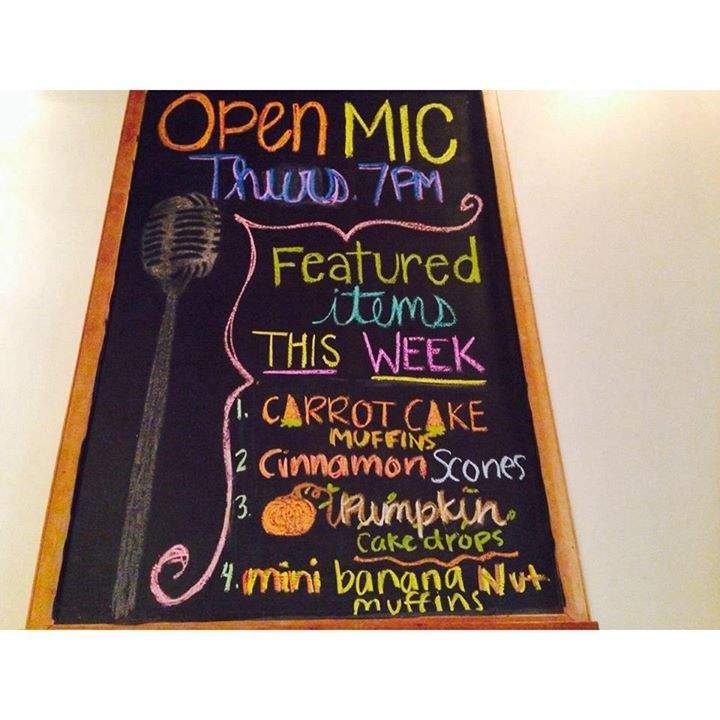 Open MIC
Thurs. 7PM
Featured
items
THIS WEEK
1. CARROT CAKE
MUFFINS
2 Cinnamon Scones
3. Pumpkin
Cake drops
4. mini banana Nut
muffins